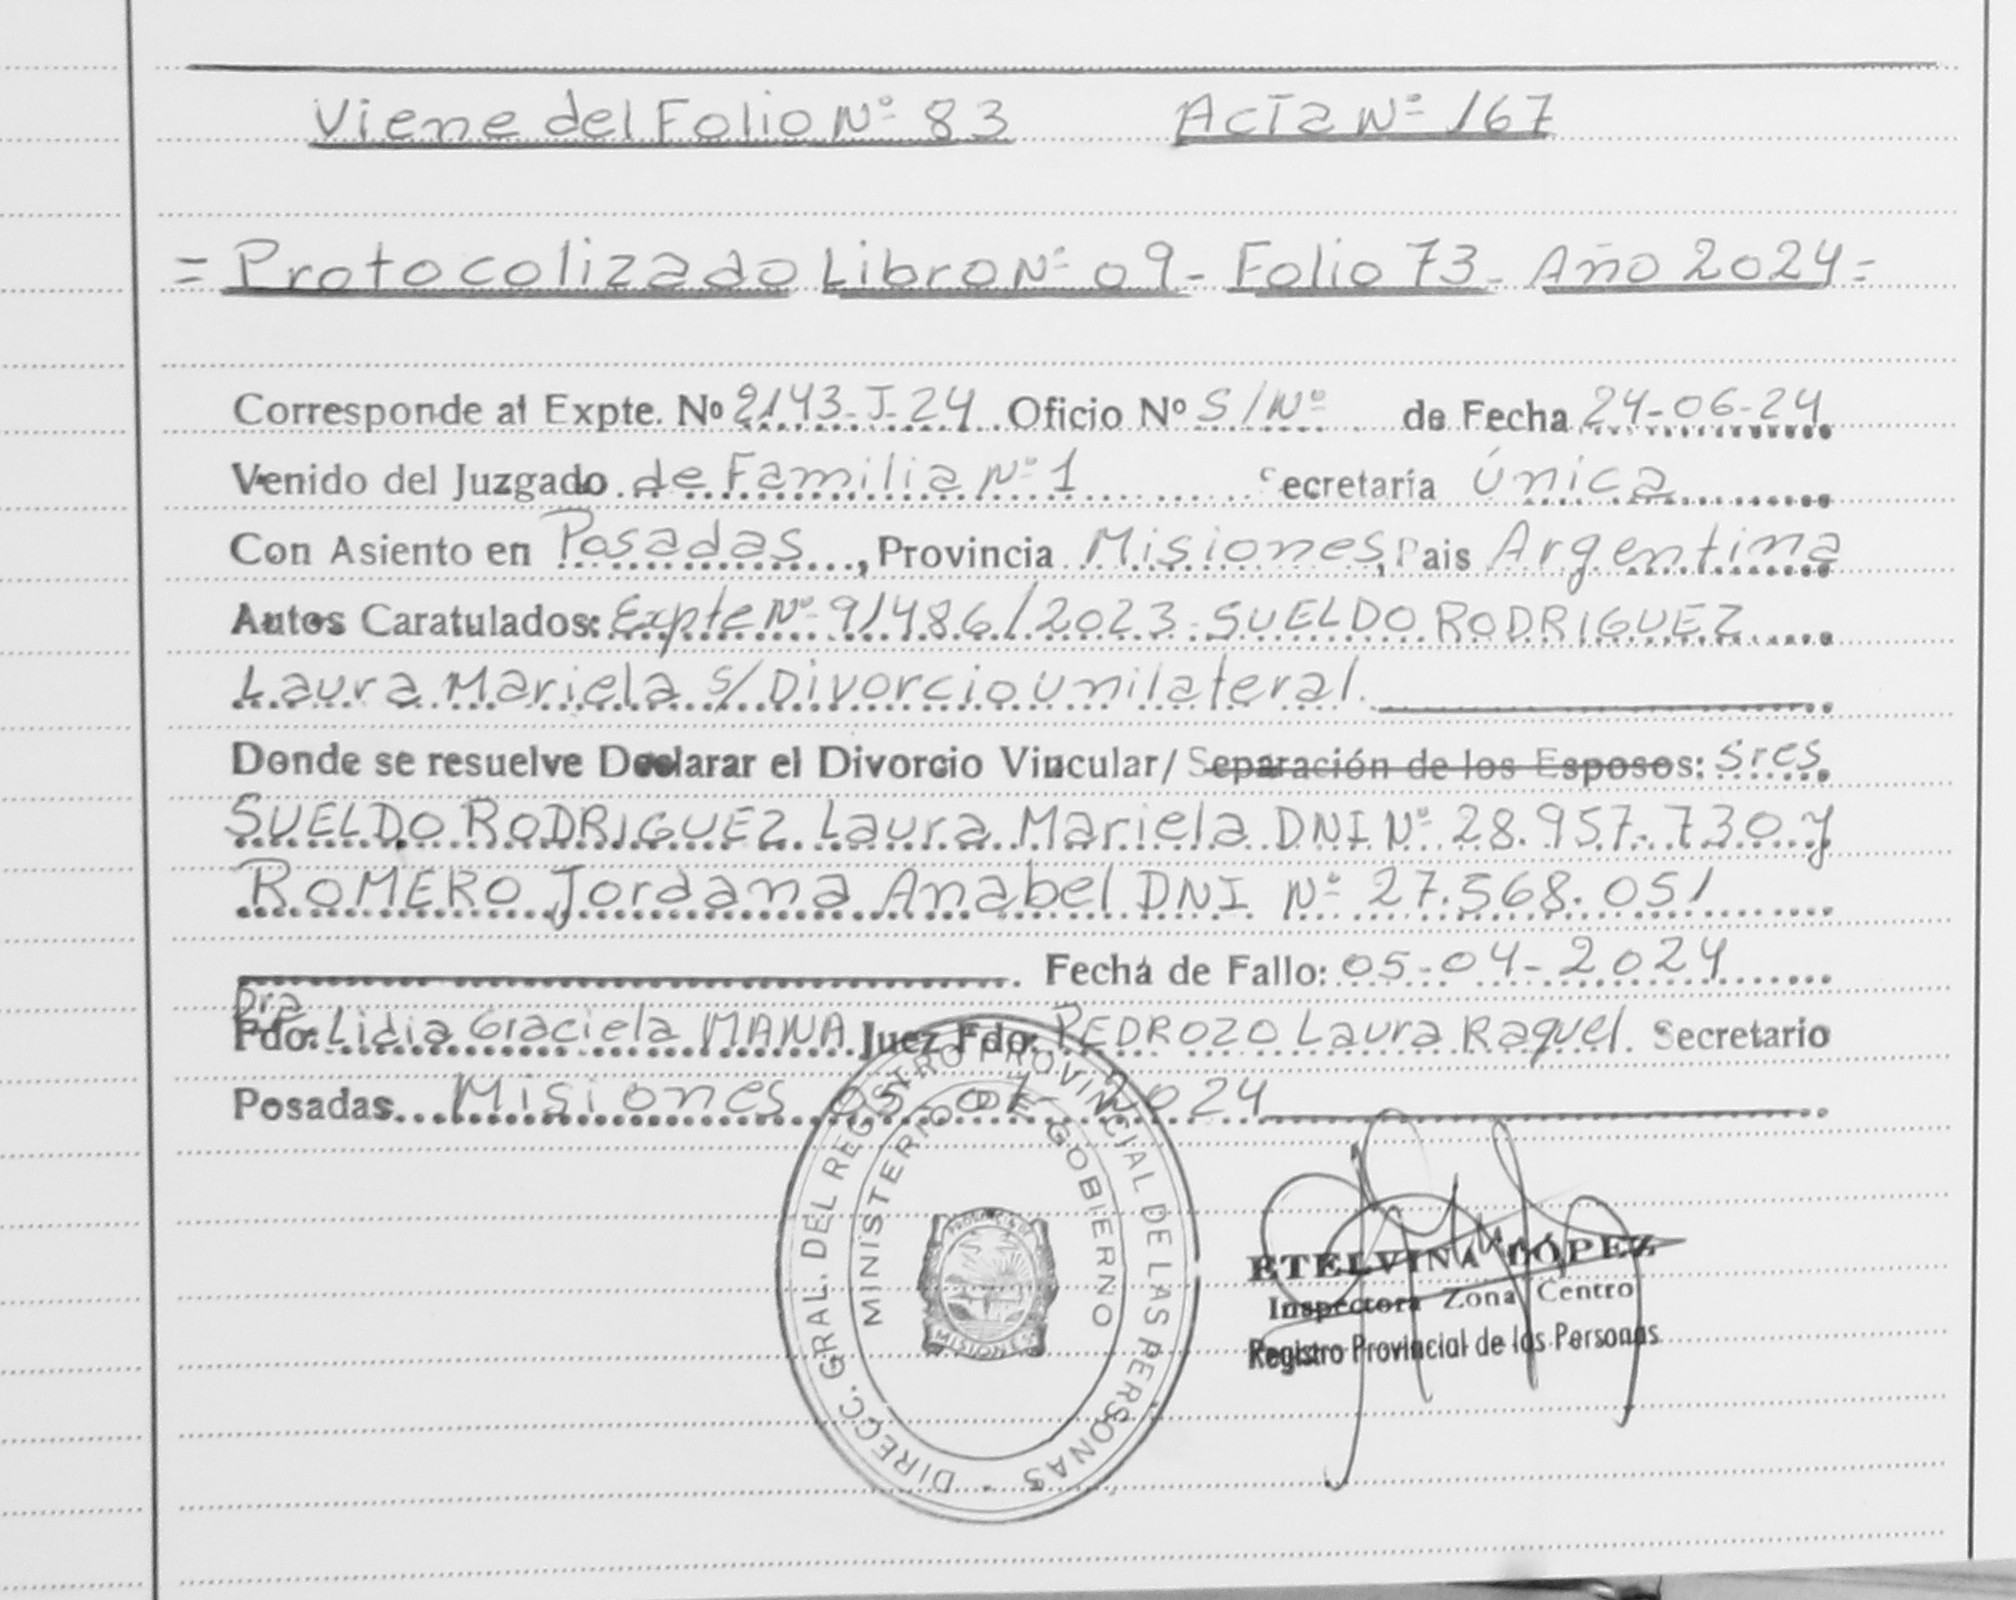 Viene del Folio Nº 83 Acta Nº 167
= Protocolizado Libro Nº 09 - Folio 73 - Año 2024 =
Corresponde al Expte. Nº 2143-J-24 Oficio Nº S/Nº de Fecha 24-06-24
Venido del Juzgado de Familia Nº 1 Secretaría Única
Con Asiento en Posadas, Provincia Misiones, Pais Argentina
Autos Caratulados: Expte Nº 91486/2023 SUELDO RODRIGUEZ
Laura Mariela s/ Divorcio unilateral.
Donde se resuelve Declarar el Divorcio Vincular/ Separación de los Esposos: Sres
SUELDO RODRIGUEZ Laura Mariela DNI Nº 28.957.730 y
ROMERO Jordana Anabel DNI Nº 27.568.051
Fecha de Fallo: 05-04-2024
Dra
Fdo: Lidia Graciela MANA Juez Fdo: PEDROZO Laura Raquel. Secretario
Posadas Misiones 05-07-2024
DIRECC. GRAL. DEL REGISTRO PROVINCIAL DE LAS PERSONAS -
MINISTERIO DE GOBIERNO
MISIONES
ETELVINA LÓPEZ
Inspectora Zona Centro
Registro Provincial de las Personas